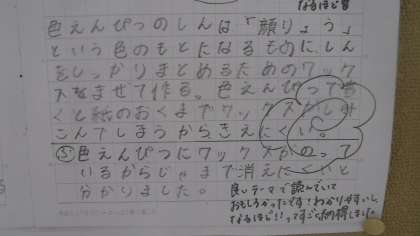 なるほど習
色えんぴつのしんは「顔りょう」
という色のもとになるものに、しん
をしっかりまとめるためのワック
スをまぜて作る。色えんぴつで書
くと紙のおくまでワックスがしみ
こんでしまうからきえにくい。
⑤色えんぴつにワックスがのって
いるからじゃまで消えにくいと
分かりました。
良いテーマで読んでいて
おもしろかったです！わかりやすいし、
なるほど！！ってすごく納得しました